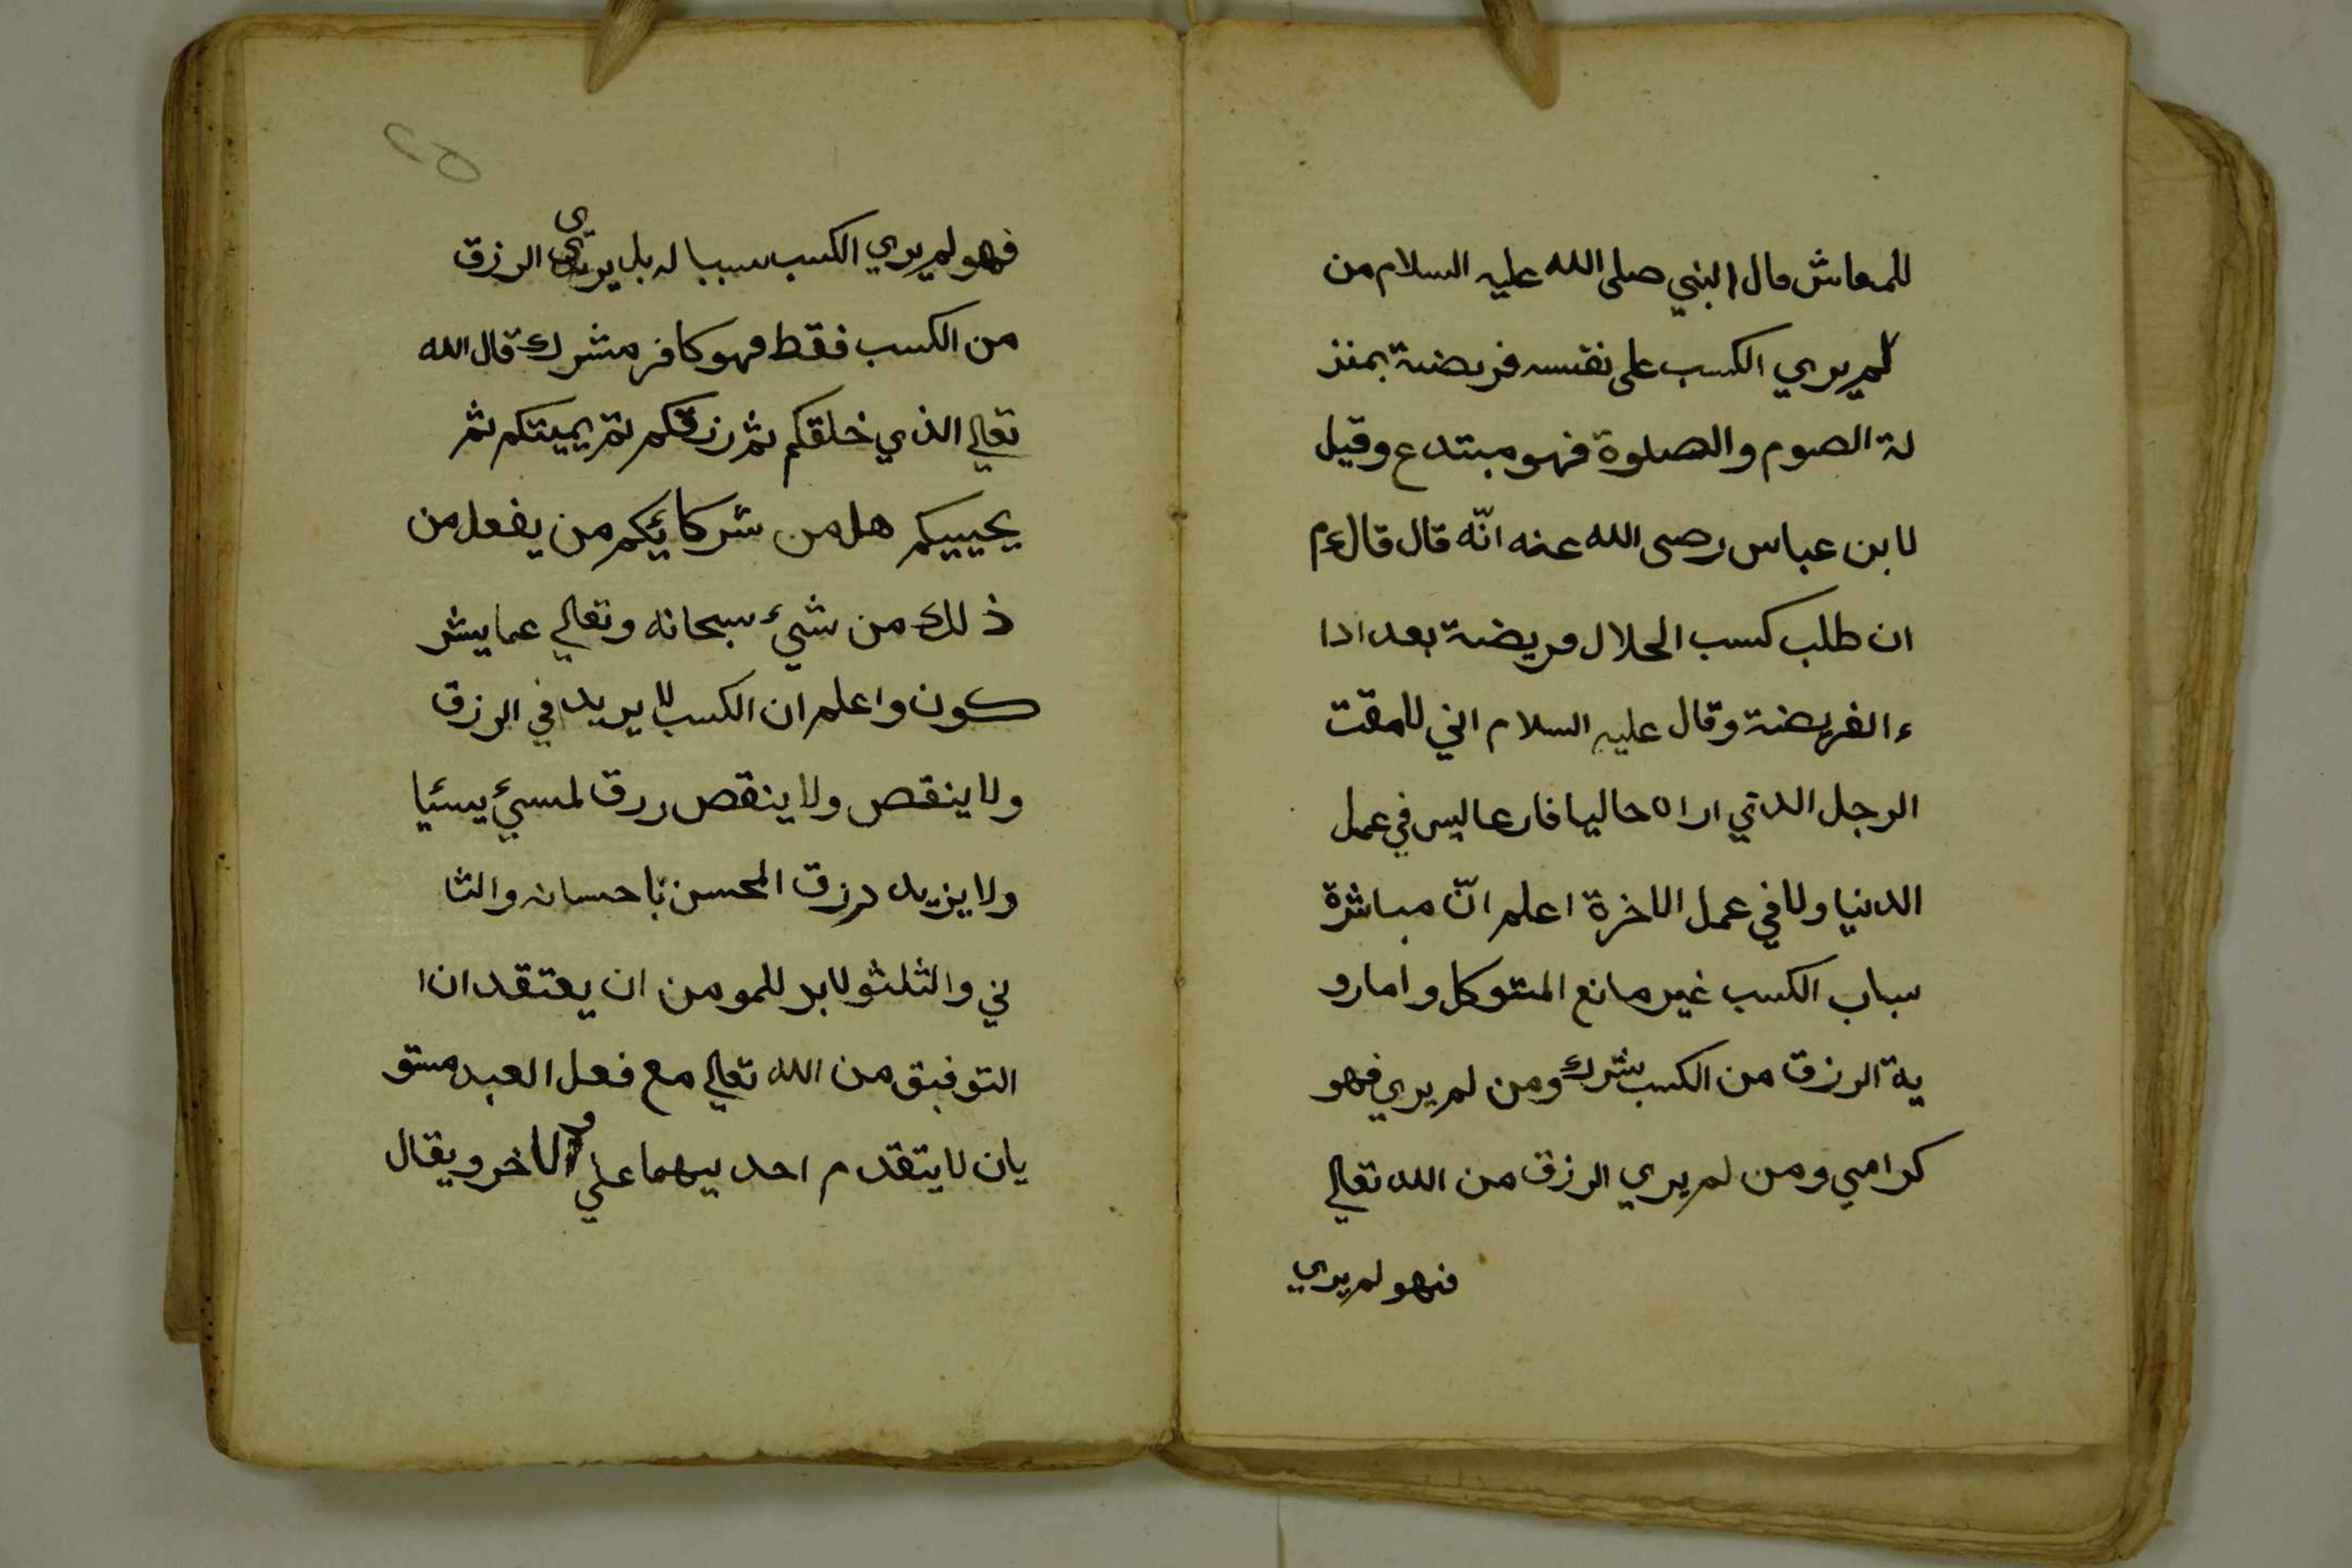 للمعاش قال النبي صلى الله عليه السلام من
لم يري الكسب على نفسه فريضة بمنز
لة الصوم والصلوة فهو مبتدع وقيل
لابن عباس رضى الله عنه انّه قال قال ءم
ان طلب كسب الحلال فريضة بعد ادا
ء الفريضة وقال عليه السلام اني لامقت
الرجل الدتي اراه حاليا فارعا ليس في عمل
الدنيا ولا في عمل الاخرة اعلم انّ مباشرة
سباب الكسب غير مانع المتوكل وامارو
ية الرزق من الكسب شرك ومن لم يري فهو
كرامي ومن لم يري الرزق من الله تعالي
فهو لم يري
فهو لم يري الكسب سببا له بل يرى الرزق
من الكسب فقط فهو كافر مشرك قال الله
تعالي الذي خلقكم ثم رزقكم ثم يميتكم ثم
يحييكم هل من شركائكم من يفعل من
ذلك من شيء سبحانه وتعالي عما يشر
كون واعلم ان الكسب لا يريد في الرزق
ولا ينقص ولا ينقص ررق لمسيئ يسئيا
ولا يزيد درزق المحسن باحسانه والثا
ني والثلثو لابد للمومن ان يعتقد ان ا
التوفيق من الله تعالي مع فعل العبد مستو
يان لا يتقدم احد بيهما علي الاخر ويقال